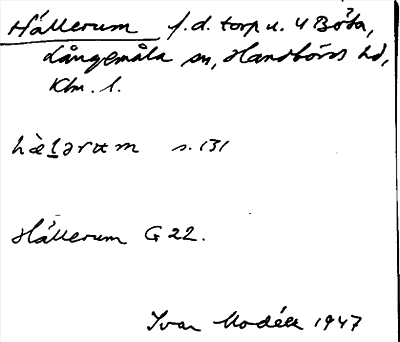 Hállerum f.d. torp u. 4 Böta,
Långemåla sn, Handbörds hd,
Klm. l.
hàlərum s. 131
Hállerum G 22.
Ivar Modéer 1947